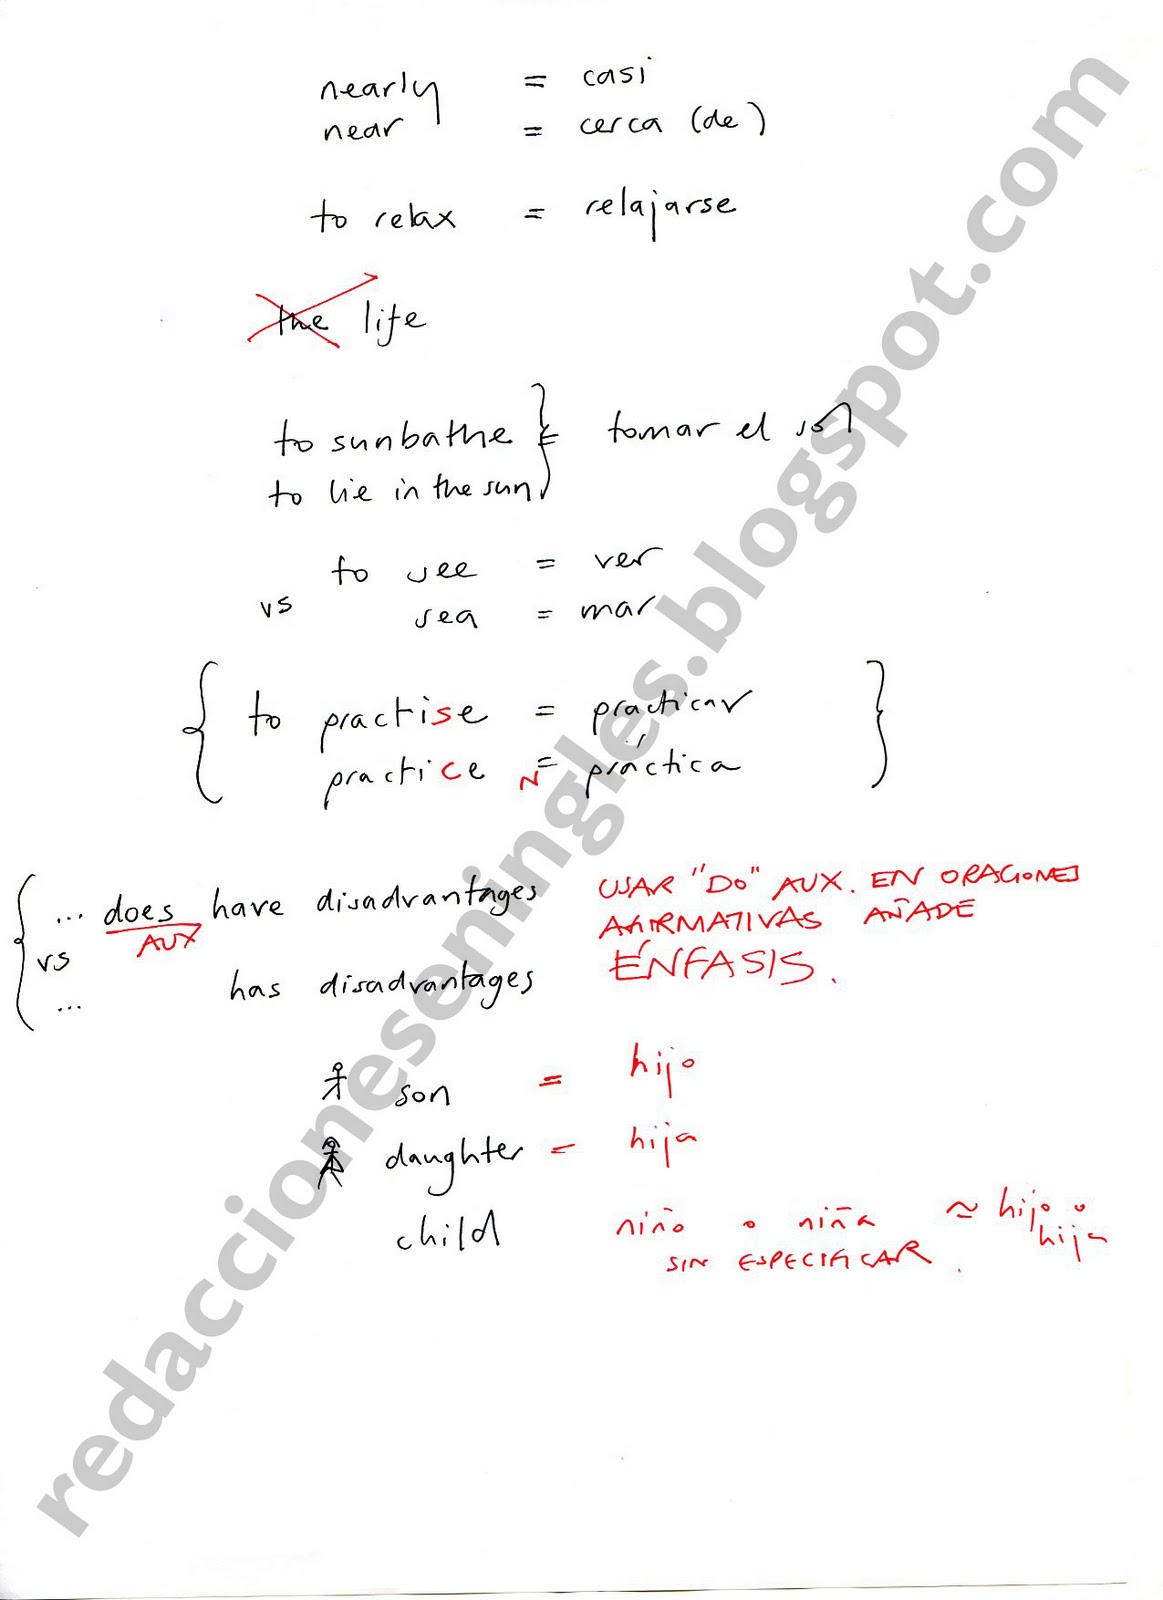 nearly = casi
near = cerca (de)
to relax = relajarse
the life
to sunbathe } = tomar el sol
to lie in the sun
to see = ver
vs
sea = mar
{ to practise = practicar }
practice N = práctica
{ ... does have disadvantages
AUX
vs
... has disadvantages
USAR "DO" AUX. EN ORACIONES
AFIRMATIVAS AÑADE
ÉNFASIS.
son = hijo
daughter = hija
child niño o niña ≈ hijo o
hija
SIN ESPECIFICAR.
redaccioneseningles.blogspot.com